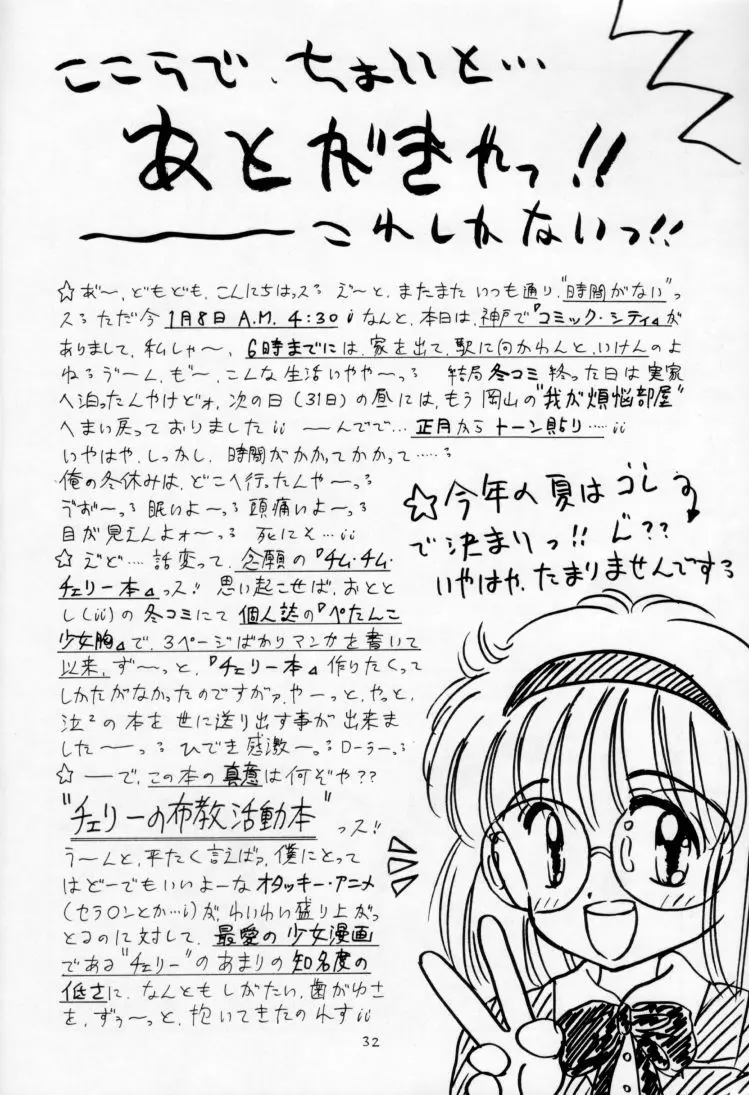 ここらで、ちょいと…
あとがきやっ!!
これしかないっ!!
☆お〜、どもども、こんにちはっスぅ え〜と、またまたいつも通り、"時間がない"っ
スぅ ただ今1月8日A.M. 4:30 i なんと、本日は、神戸で『コミック・シティ』が
ありまして、私しゃ〜、6時までには、家を出て、駅に向かわんと、いけんのよ
ねぇ う゛〜ん、も〜、こんな生活いやや〜っぅ 結局 冬コミ 終った日は 実家
へ泊ったんやけどォ、次の日(31日)の昼には、もう 岡山の"我が煩悩部屋"
へまい戻って おりました ii 〜んでで… 正月から トーン貼り…… ii
いやはや、しっかし、時間がかかってかかって……ぅ
俺の冬休みは、どこへ行ったんや〜っぅ
う゛お〜ぅ 眠いよ〜ぅ 頭痛いよ〜ぅ
目が見えんよォ〜っぅ 死にそ…ii
☆えど… 話変って、念願の『チム・チム・
チェリー本』っス!! 思い起こせば、おとと
し(ii)の冬コミにて 個人誌の『ぺたんこ
少女胸』で、3ページばかりマンガを書いて
以来、ず〜っと、『チェリー本』作りたくって
しかたがなかったのですがァ、やーっと、やっと、
泣²の本を 世に送り出す事が 出来ま
した〜っぅ ひでき 感激〜っぅ ローラーっぅ
☆ーで、この本の真意は何ぞや??
"チェリーの布教活動本"っス!!
う〜んと、平たく言えばァ、僕にとって
はどーでもいいよーな オタッキー・アニメ
(セラ〇ンとか…i)が、わいわい盛り上がっ
とるのに対して、最愛の少女漫画
である"チェリー"のあまりの知名度の
低さに、なんとも しがたい、歯がゆさ
を、ずぅ〜っと、抱いてきたのれす ii
☆今年の夏はコレ
で決まりっ!! ど??
いやはや、たまりませんですぅ
32